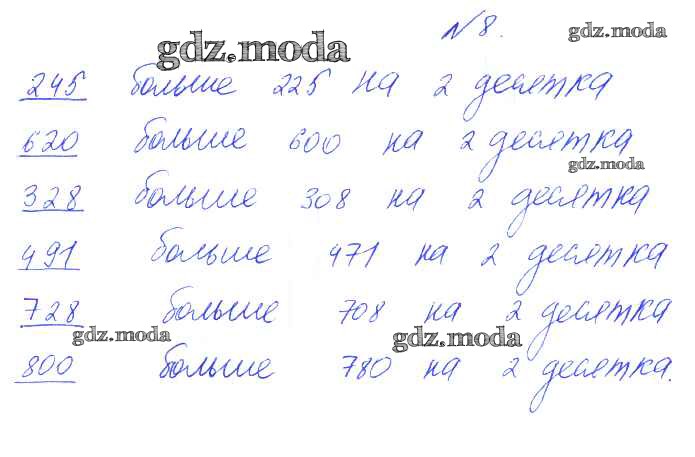 № 8.
gdz.moda gdz.moda
245 больше 225 на 2 десятка
620 больше 600 на 2 десятка
gdz.moda
328 больше 308 на 2 десятка
491 больше 471 на 2 десятка
728 больше 708 на 2 десятка
gdz.moda gdz.moda
800 больше 780 на 2 десятка.